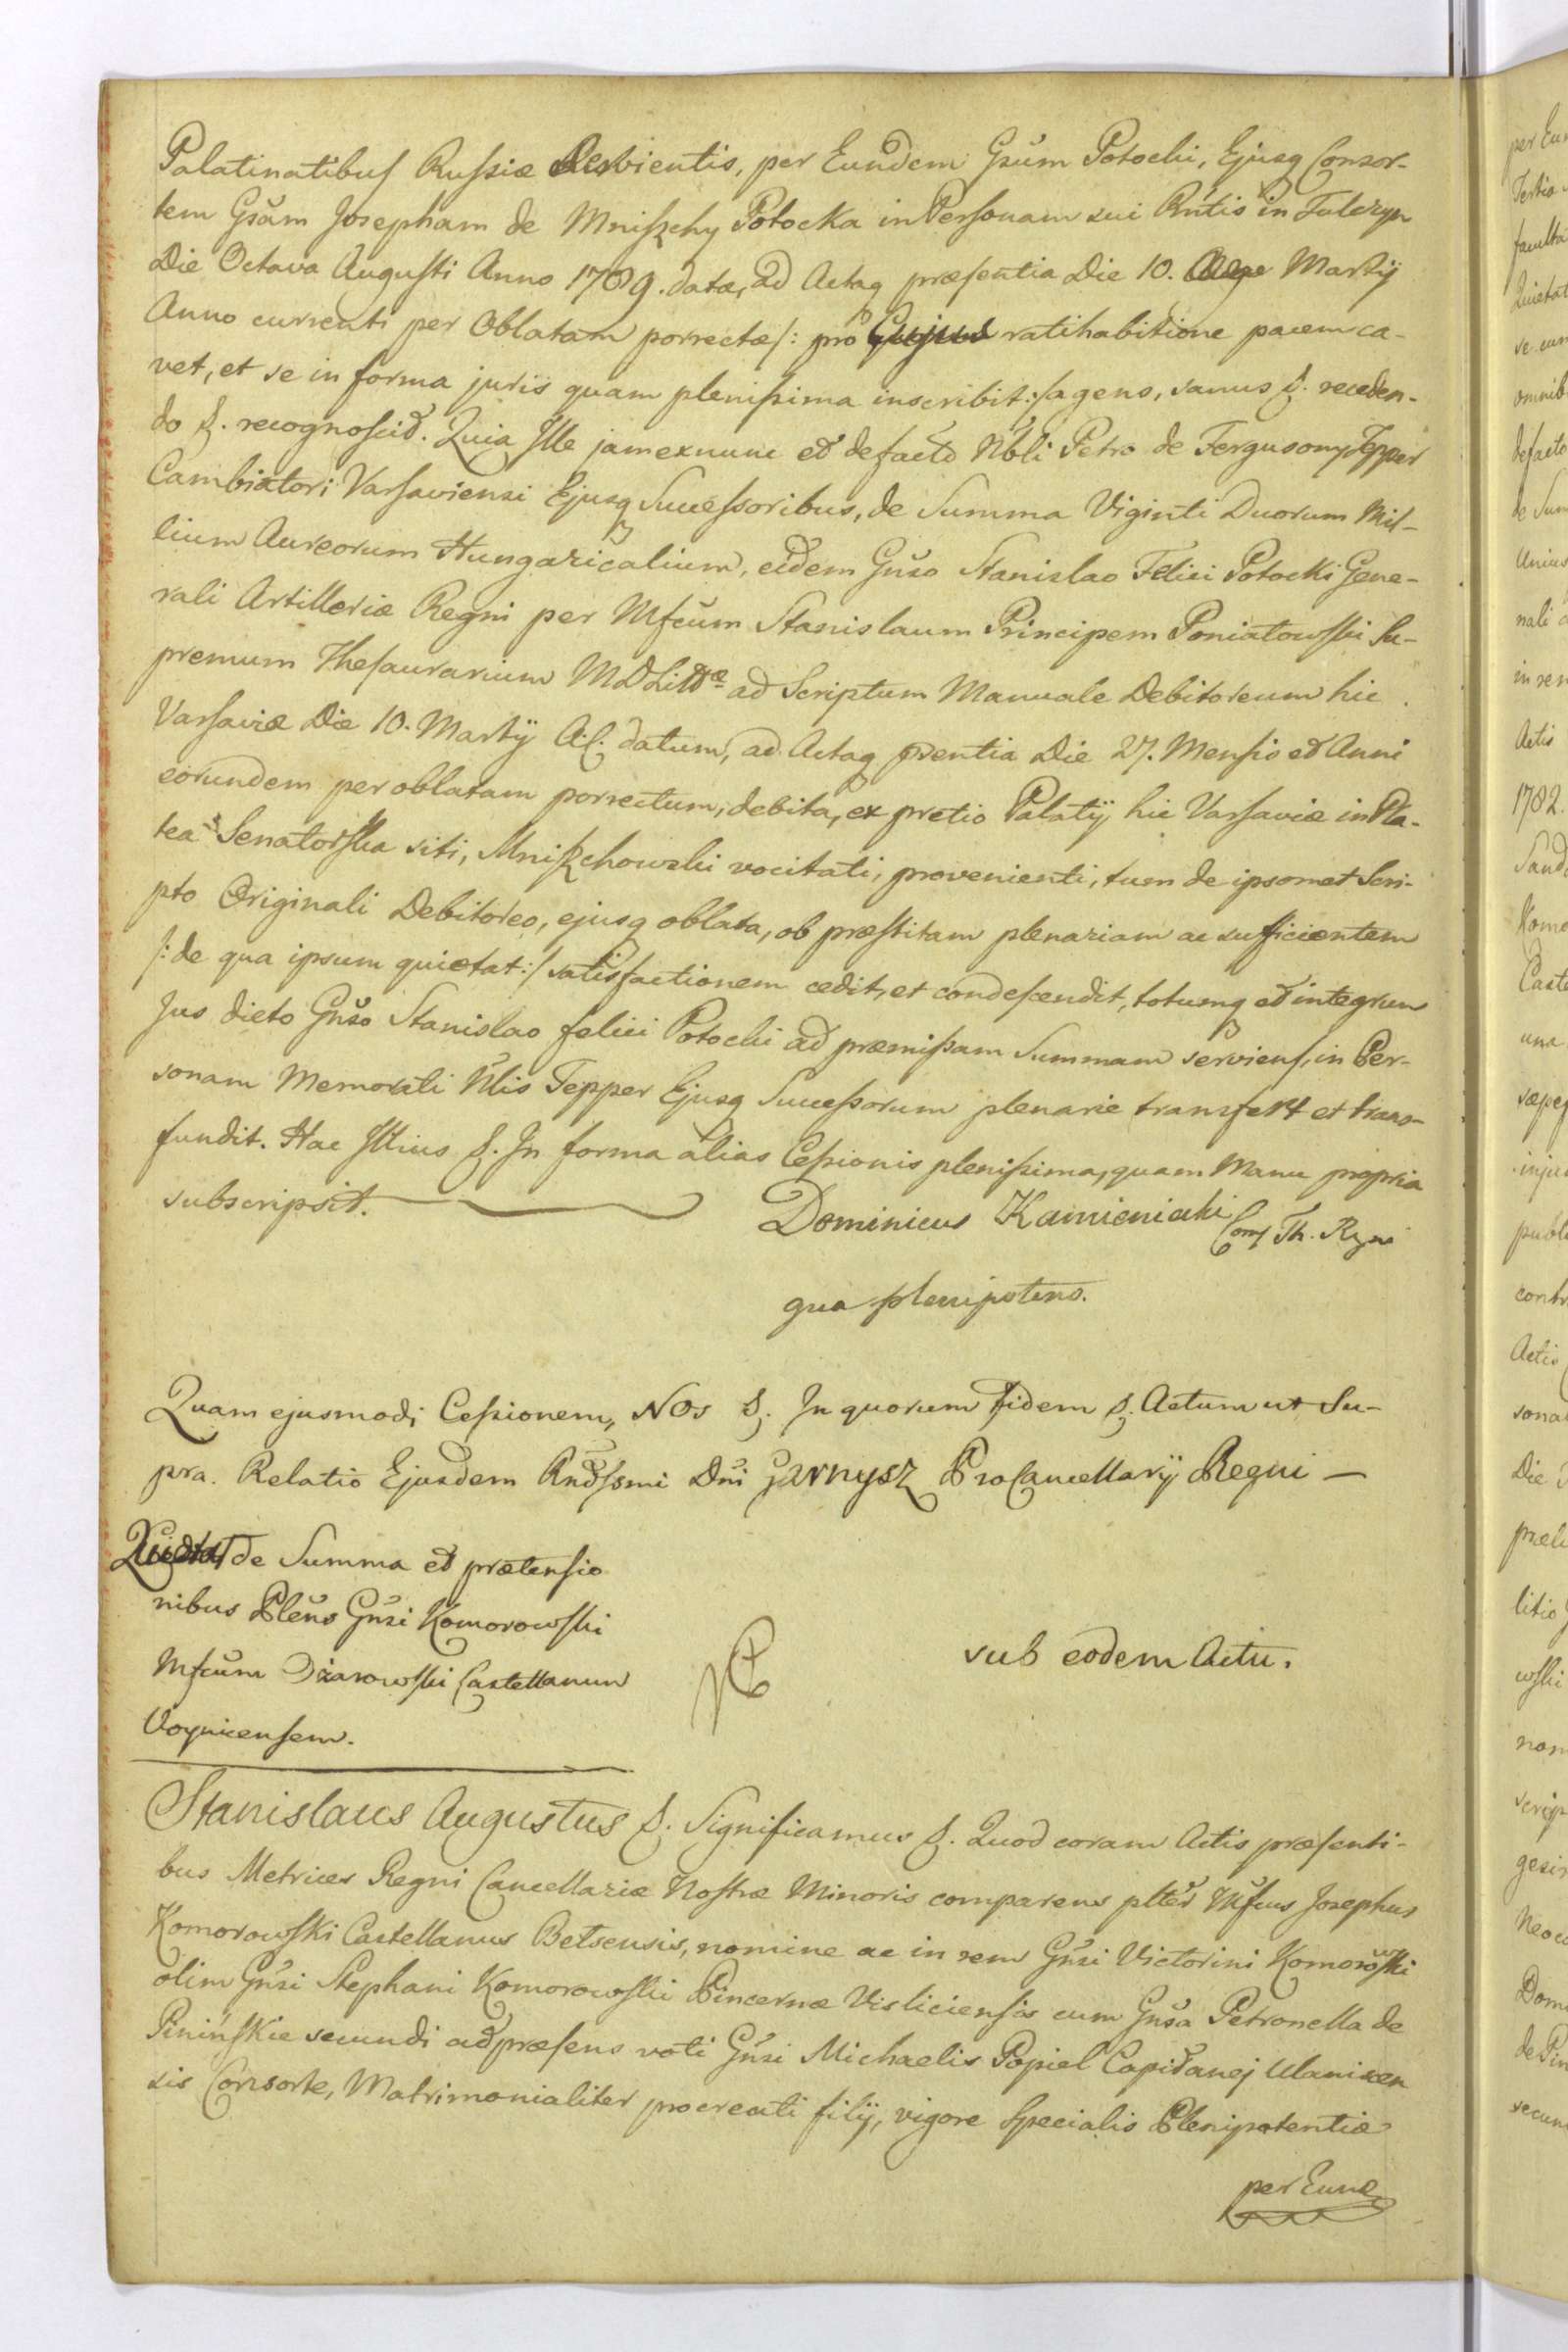 Palatinatibus Russiæ servientis, per Eundem Gsum Potocki, Ejusq Consor-
tem Gsam Josepham de Mniszchy Potocka in Personam sui Rntis in Tulczyn
Die Octava Augusti Anno 1789. datæ, ad Actaq præsentia Die 10. Martij
Anno currenti per Oblatam porrectæ/: pro Cujus ratihabitione pacem ca-
vet, et se in forma juris quam plenissima inscribit:/ agens, sanus &. receden-
do &. recognoscit. Quia Ille jam ex nunc et de facto Nbli Petro de Fergusony Tepper
Cambiatori Varsaviensi Ejusq Successoribus, de Summa Viginti Duorum Mil-
lium Aureorum Hungaricalium, eidem Gnso Stanislao Felici Potocki Gene-
rali Artilleriæ Regni per Mfcum Stanislaum Principem Poniatowski Su-
premum Thesaurarium MDLittæ ad Scriptum Manuale Debitoreum hic
Varsaviæ Die 10. Martij A.C. datum, ad Actaq prentia Die 27. Mensis et Anni
eorundem per oblatam porrectum, debita, ex pretio Palatij hic Varsaviæ in Pla-
tea Senatorska siti, Mniszchowski vocitati, provenienti, tum de ipsomet Scri-
pto Originali Debitoreo, ejusq oblata, ob præstitam plenariam ac sufficientem
/: de qua ipsum quietat:/ satisfactionem cedit, et condescendit, totumq et integrum
Jus dicto Gnso Stanislao felici Potocki ad præmissam Summam serviens, in Per-
sonam Memorati Nlis Tepper Ejusq Successorum plenarie transfert et trans-
fundit. Hac Illius &. In forma alias Cessionis plenissima, quam Manu propria
subscripsit. Dominicus Kamieniecki Com Th. Regni
qua plenipotens.
Quam ejusmodi Cessionem, Nos &. In quorum fidem &. Actum ut Su-
pra. Relatio Ejusdem Rndssmi Dni Garnysz ProCancellarij Regni —
Quietat de Summa et prætensio
nibus Plens Gnsi Komorowski
Mfcum Ożarowski Castellanum
Voynicensem.
sub eodem Actu.
Stanislaus Augustus &. Significamus &. Quod coram Actis præsenti-
bus Metrices Regni Cancellariæ Nostræ Minoris comparens plter Mfcus Josephus
Komorowski Castellanus Betsensis, nomine ac in rem Gnsi Victorini Komorowski
olim Gnsi Stephani Komorowski Pincernæ Visliciensis cum Gnsa Petronella de
Pinińskie secundi ad præsens voti Gnsi Michaelis Popiel Capitanej Ulanicen
sis Consorte, Matrimonialiter procreati filij, vigore Specialis Plenipotentiæ
per Eund